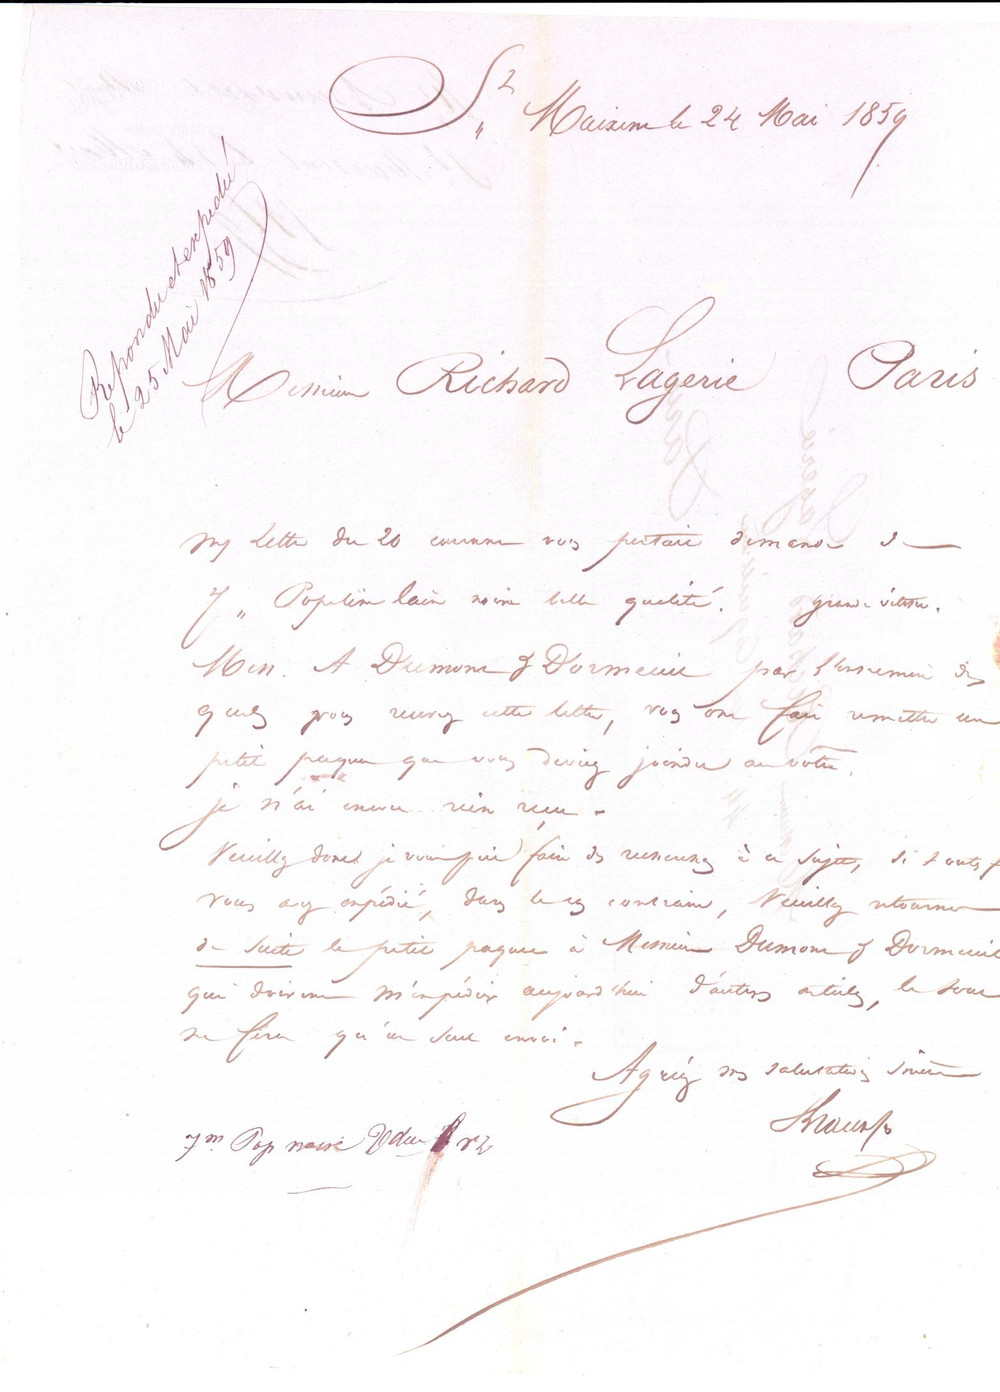 St Maixent le 24 Mai 1859
Repondu et expedié
le 25 Mai 1859
Messieurs Richard Lagerie Paris
Ma Lettre du 20 courant vous portait demande de
7 „ Popeline laine noire belle qualité. grande vitesse.
Mess. A Dumont & Dormeuil par l'entremise des
quels vous recevez cette lettre, vous ont fait remettre un
petit paquet que vous deviez joindre au votre.
je n'ai encore rien reçu.
Veuillez donc je vous prie faire des recherches à ce sujet, si toutefois
vous avez expédié, dans le cas contraire, Veuillez retourner
de suite le petit paquet à Messieurs Dumont & Dormeuil
qui doivent m'expédier aujourd'hui d'autres articles, le tout
ne fera qu'un seul envoi.
Agréez mes salutations sincères
7 m Pop noire